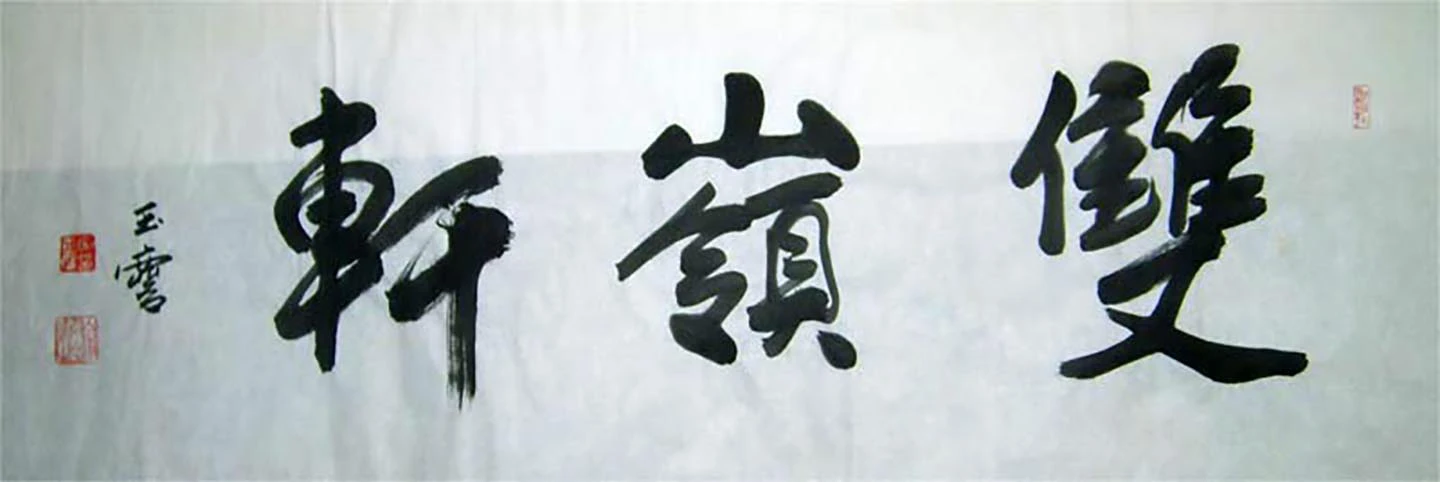 雙嶺軒
玉霄